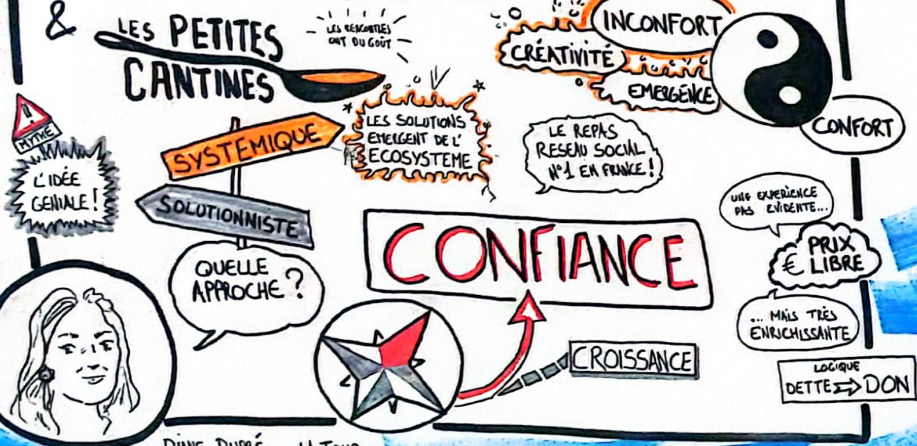 &
LES PETITES
CANTINES
LES RENCONTRES
ONT DU GOÛT
INCONFORT
CRÉATIVITÉ
EMERGENCE
CONFORT
MYTHE
L'IDÉE
GENIALE !
SYSTEMIQUE
SOLUTIONNISTE
LES SOLUTIONS
EMERGENT DE L'
ECOSYSTEME
LE REPAS
RESEAU SOCIAL
N°1 EN FRANCE !
QUELLE
APPROCHE ?
CONFIANCE
CROISSANCE
UNE EXPERIENCE
PAS EVIDENTE...
PRIX
€ LIBRE
... MAIS TRÈS
ENRICHISSANTE
LOGIQUE
DETTE ⇒ DON